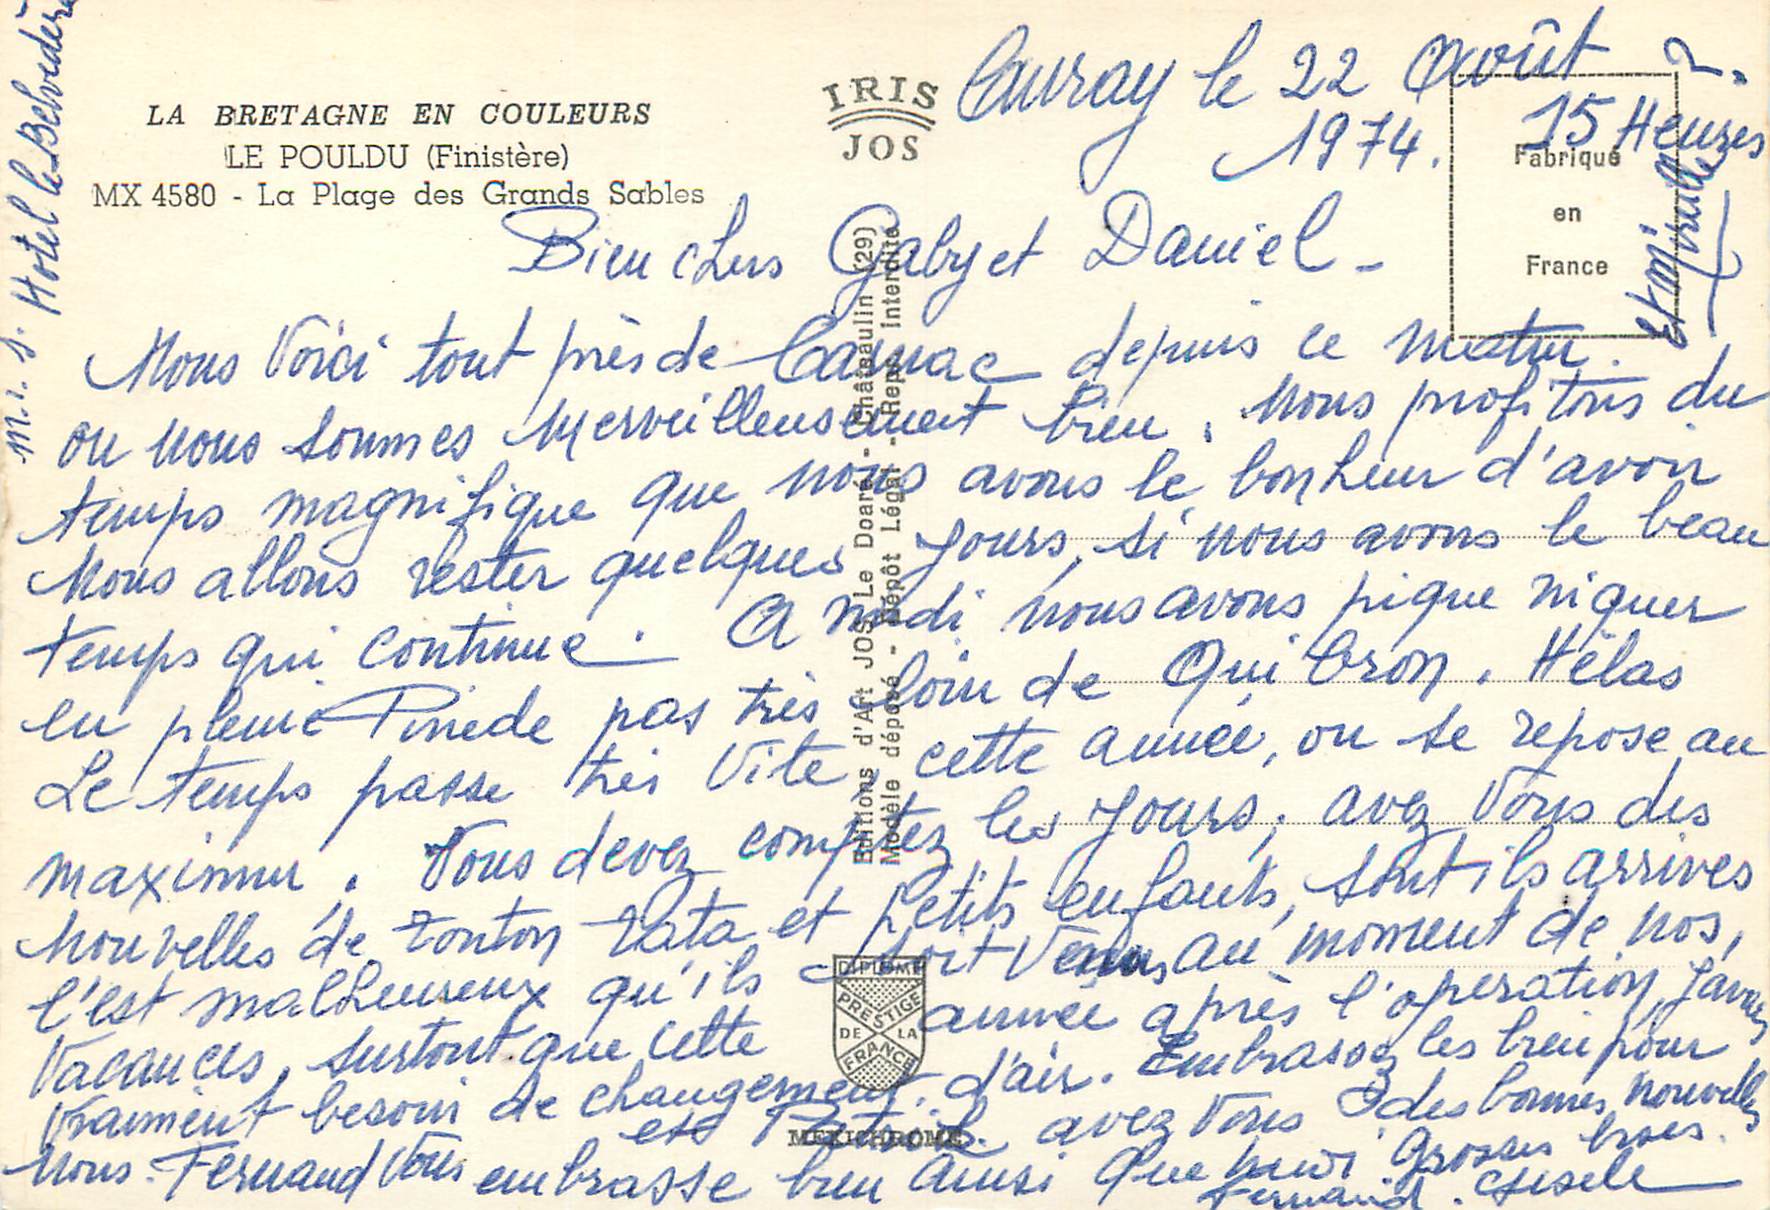 LA BRETAGNE EN COULEURS
LE POULDU (Finistère)
MX 4580 - La Plage des Grands Sables
IRIS
JOS
Fabriqué
en
France
Auray le 22 Août
1974. 15 Heures
Bien chers Gaby et Daniel -
Nous Voici tout près de Carnac depuis ce matin.
ou nous sommes Merveilleusement bien. Nous profitons du
temps magnifique que nous avons le bonheur d'avoir
Nous allons rester quelques jours, si nous avons le beau
temps qui continue. A Midi nous avons pique niquer
en pleine Pinède pas très loin de Quibron. Hélas
Le temps passe très Vite, cette année, on se repose au
maximun. Vous devez comptez les jours, avez Vous des
Nouvelles de tonton tata et petits enfants, sont ils arrives
C'est malheureux qu'ils soit Venus au moment de nos,
Vacances, surtout que cette année après l'operation, J'avais
Vraiment besoin de changement d'air. Embrassez les bien pour
Nous. et avez Vous des bonnes nouvelles
Fernand Vous embrasse bien ainsi que Grosses bises.
Fernand. Gisele
m. s. Hotel le Belvédère
Et Mireille ?
Editions d'Art JOS Le Doaré - Châteaulin (29)
Modèle déposé - Dépôt Légal - Repr. Interdite
DIPLOME
PRESTIGE
DE LA
FRANCE
MEXICHROME